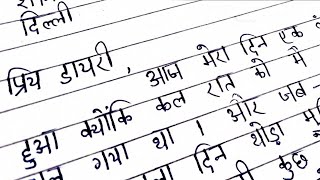 दिल्ली
प्रिय डायरी,
आज मेरा दिन एक
हुआ क्योंकि कल रात को मैं
गया था। और जब
दिन थोड़ा
कुछ